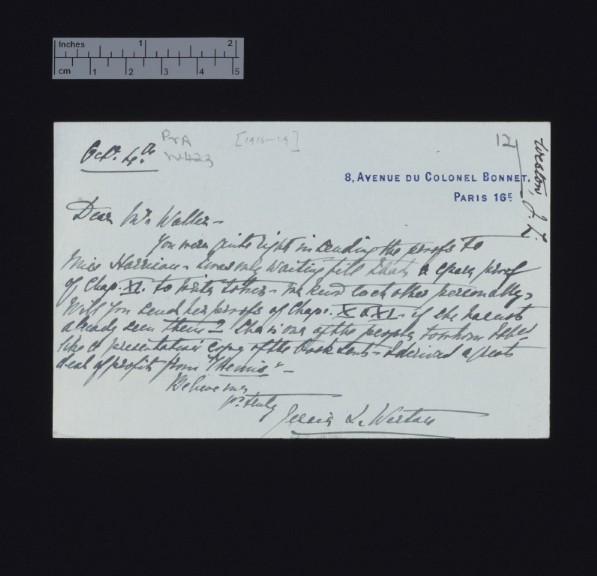 Inches 1 2
cm 1 2 3 4 5
Oct. 4th
PrA
W423
[1916-19]
12
Weston J. L.
8, AVENUE DU COLONEL BONNET.
PARIS 16E
Dear Mr Waller -
You were quite right in sending the proofs to
Miss Harrison - I was only waiting till I had a spare proof
of Chap. XI. to write to her - we know each other personally.
Will you send her proofs of Chaps. X & XI. if she has not
already seen them? She is one of the people to whom I shd.
like a presentation copy of the book sent - I derived a great
deal of profit from "Themis" -
Believe me
yrs. truly
Jessie L. Weston